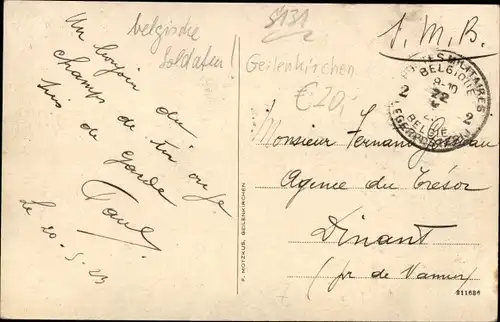 belgische
Soldaten!!
5131
Geilenkirchen
€20,-
S. M. B.
POSTES MILITAIRES
BELGIQUE
2 2
BELGIE
LEGERPOSTERIJ
Un bonjour du
champs de tir où je
suis de garde
Paul
Le 20-5-23
F. MOTZKUS, GEILENKIRCHEN
Monsieur Fernand
Agence du Trésor
Dinant
(pr de Namur)
211686